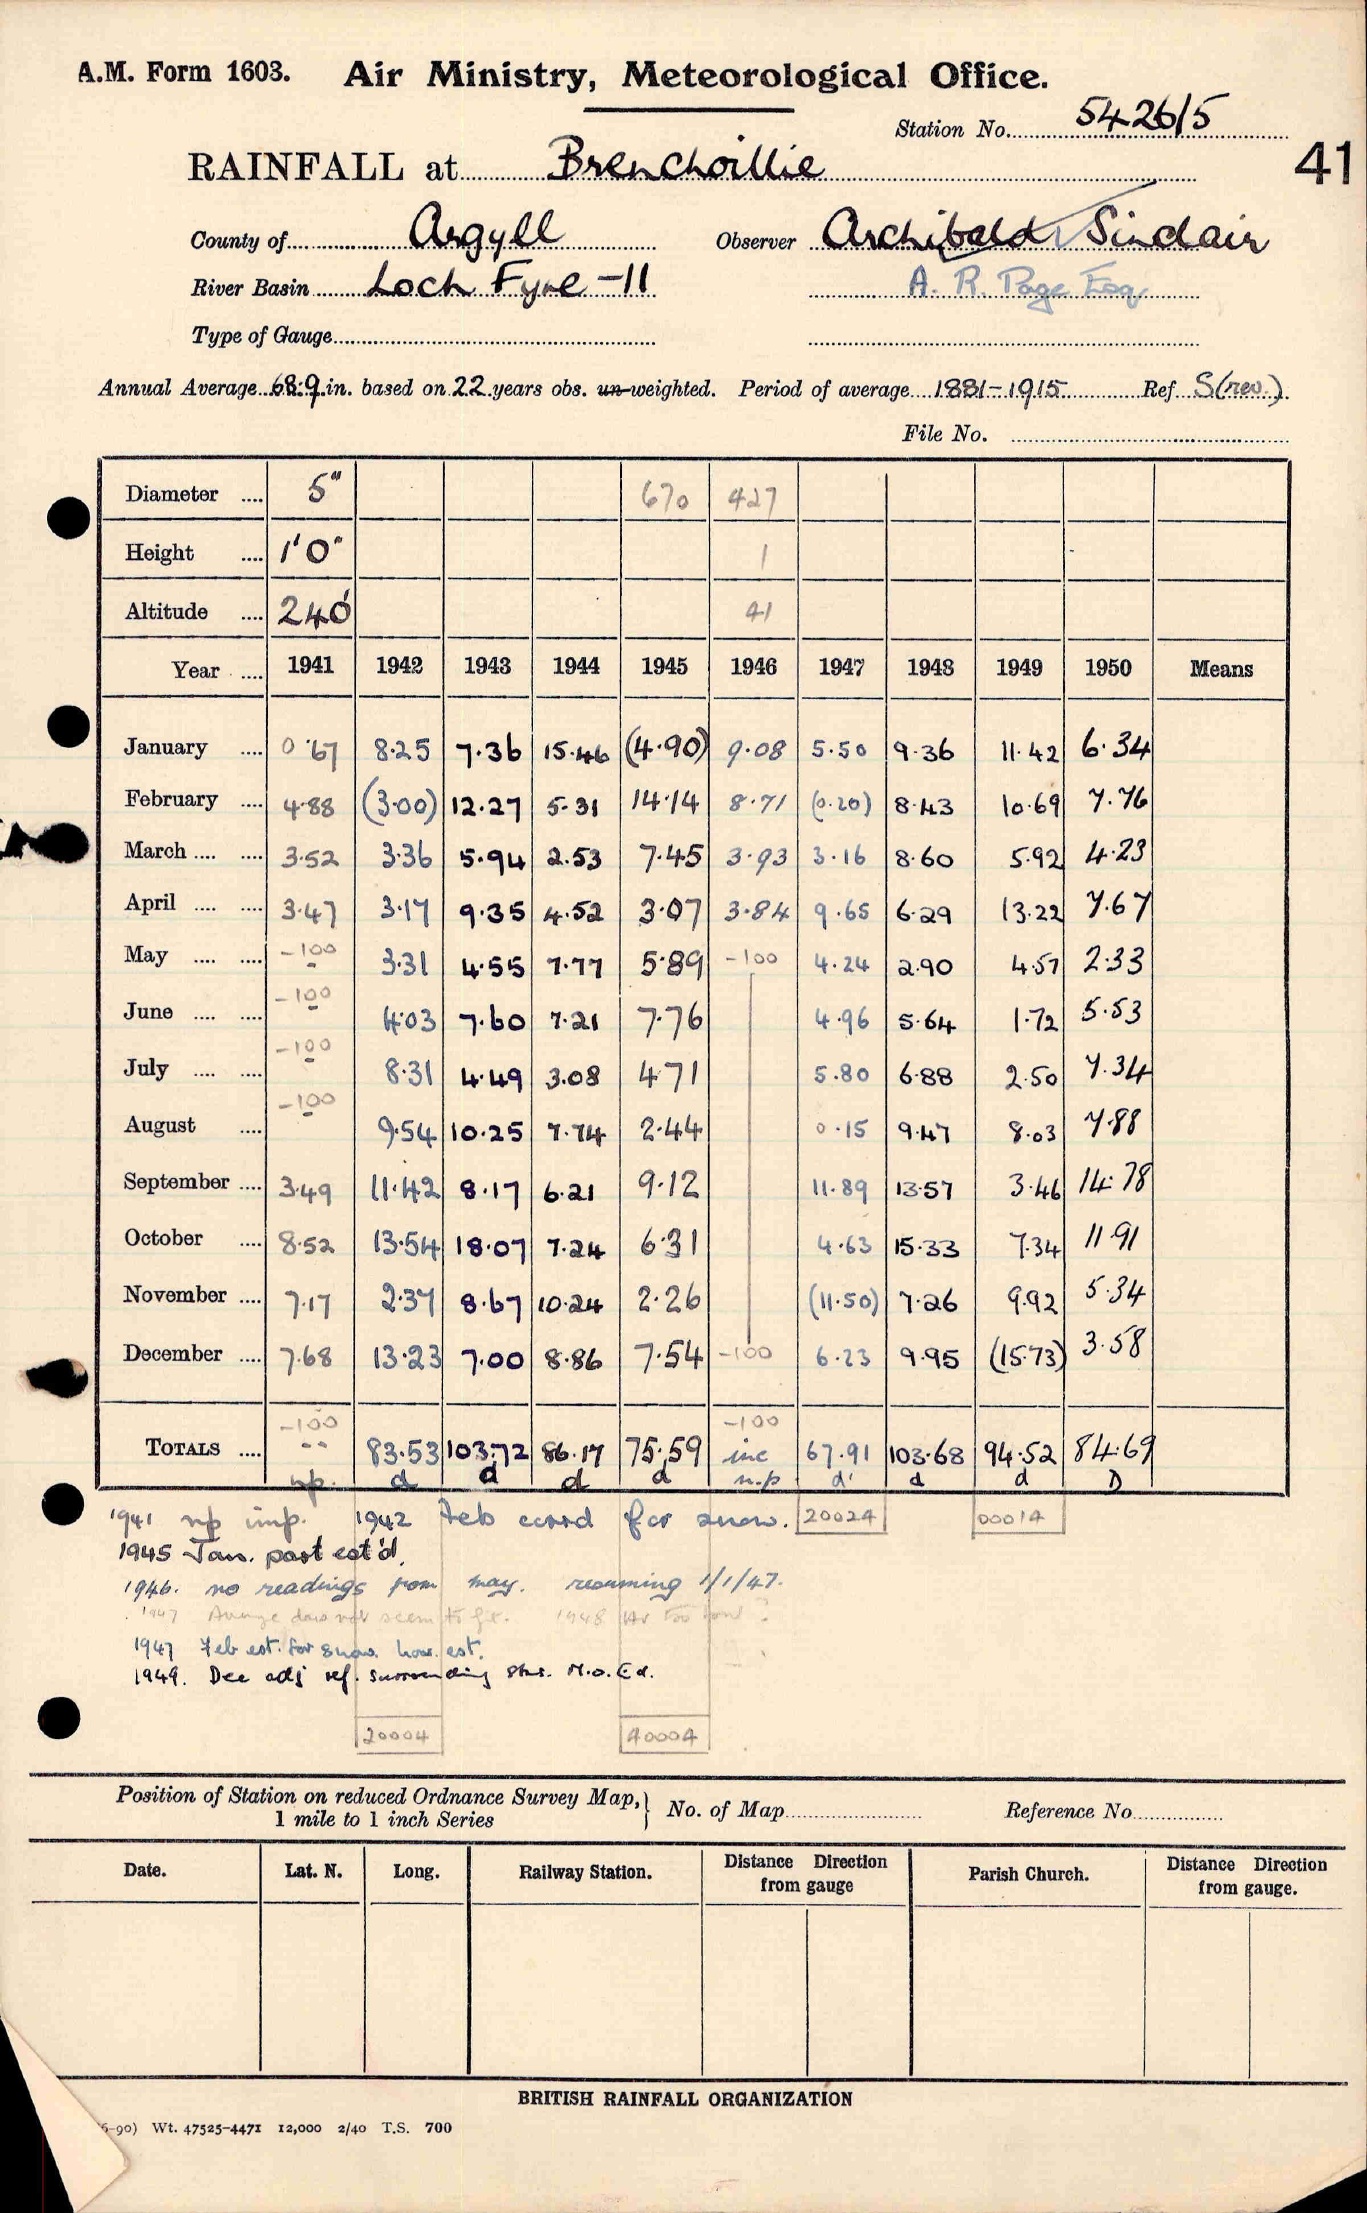 A.M. Form 1603. Air Ministry, Meteorological Office.
Station No. 5426/5
41
RAINFALL at Brenchoillie
County of Argyll Observer Archibald Sinclair
River Basin Loch Fyne -11 A. R. Page Esq
Type of Gauge
Annual Average 68.9 in. based on 22 years obs. un-weighted. Period of average 1881-1915 Ref S(rev.)
File No.
Diameter .... 5" 670 427
Height .... 1'0" 1
Altitude .... 240' 41
Year .... 1941 1942 1943 1944 1945 1946 1947 1948 1949 1950 Means
January .... 0.67 8.25 7.36 15.46 (4.90) 9.08 5.50 9.36 11.42 6.34
February .... 4.88 (3.00) 12.27 5.31 14.14 8.71 (0.20) 8.43 10.69 7.76
March .... .... 3.52 3.36 5.94 2.53 7.45 3.93 3.16 8.60 5.92 4.23
April .... .... 3.47 3.17 9.35 4.52 3.07 3.84 9.65 6.29 13.22 7.67
May .... .... -100 - 3.31 4.55 7.77 5.89 -100 4.24 2.90 4.57 2.33
June .... .... -100 - 4.03 7.60 7.21 7.76 4.96 5.64 1.72 5.53
July .... .... -100 - 8.31 4.49 3.08 4.71 5.80 6.88 2.50 7.34
August .... -100 - 9.54 10.25 7.74 2.44 0.15 9.47 8.03 7.88
September .... 3.49 11.42 8.17 6.21 9.12 11.89 13.57 3.46 14.78
October .... 8.52 13.54 18.07 7.24 6.31 4.63 15.33 7.34 11.91
November .... 7.17 2.37 8.67 10.24 2.26 (11.50) 7.26 9.92 5.34
December .... 7.68 13.23 7.00 8.86 7.54 -100 6.23 9.95 (15.73) 3.58
-100 -100
TOTALS .... -- 83.53 103.72 86.17 75.59 inc 67.91 103.68 94.52 84.69
np. d d d d n.p d d d D
1941 np imp. 1942 Feb corrd for snow. 20024 00014
1945 Jan. part est'd.
1946. no readings from May. resuming 1/1/47.
1947 does not seem to 1948
1947 Feb est. for snow. Nov. est.
1949. Dec adj ref. surrounding stns. M.O. Ed.
20004 40004
Position of Station on reduced Ordnance Survey Map, 1 mile to 1 inch Series } No. of Map Reference No
Date. Lat. N. Long. Railway Station. Distance Direction from gauge Parish Church. Distance Direction from gauge.
BRITISH RAINFALL ORGANIZATION
6-90) Wt. 47525-4471 12,000 2/40 T.S. 700